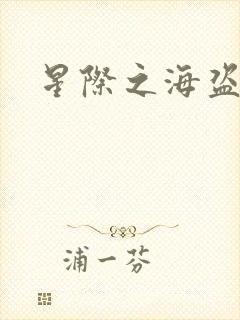 星際之海盜
浦一芬